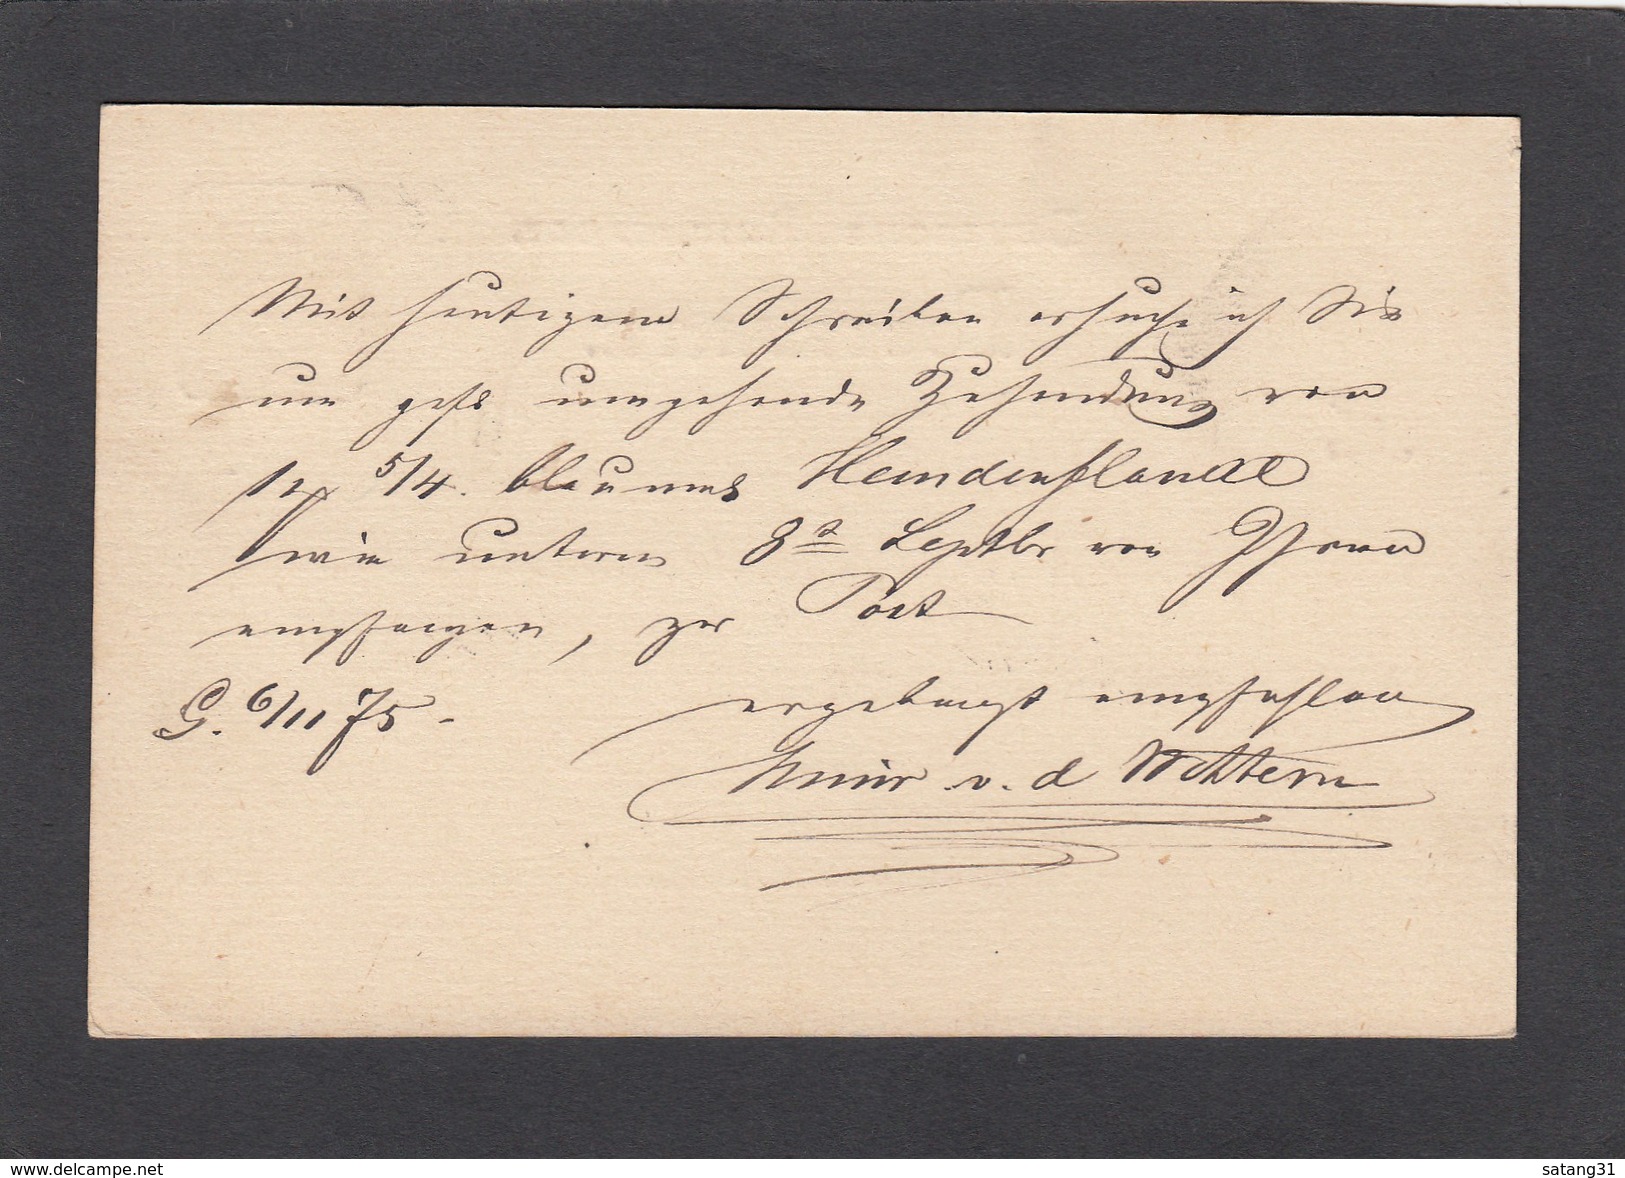 Mit heutigem Schreiben ersuche ich Sie
um gefl umgehende Zusendung von
5/4. blaumel Hemdenflanell
wie unterm 8t Septbr von Ihnen
empfangen, per Post
G. 6/11 75 -
ergebenst empfehlen
v. d
www.delcampe.net
satang31